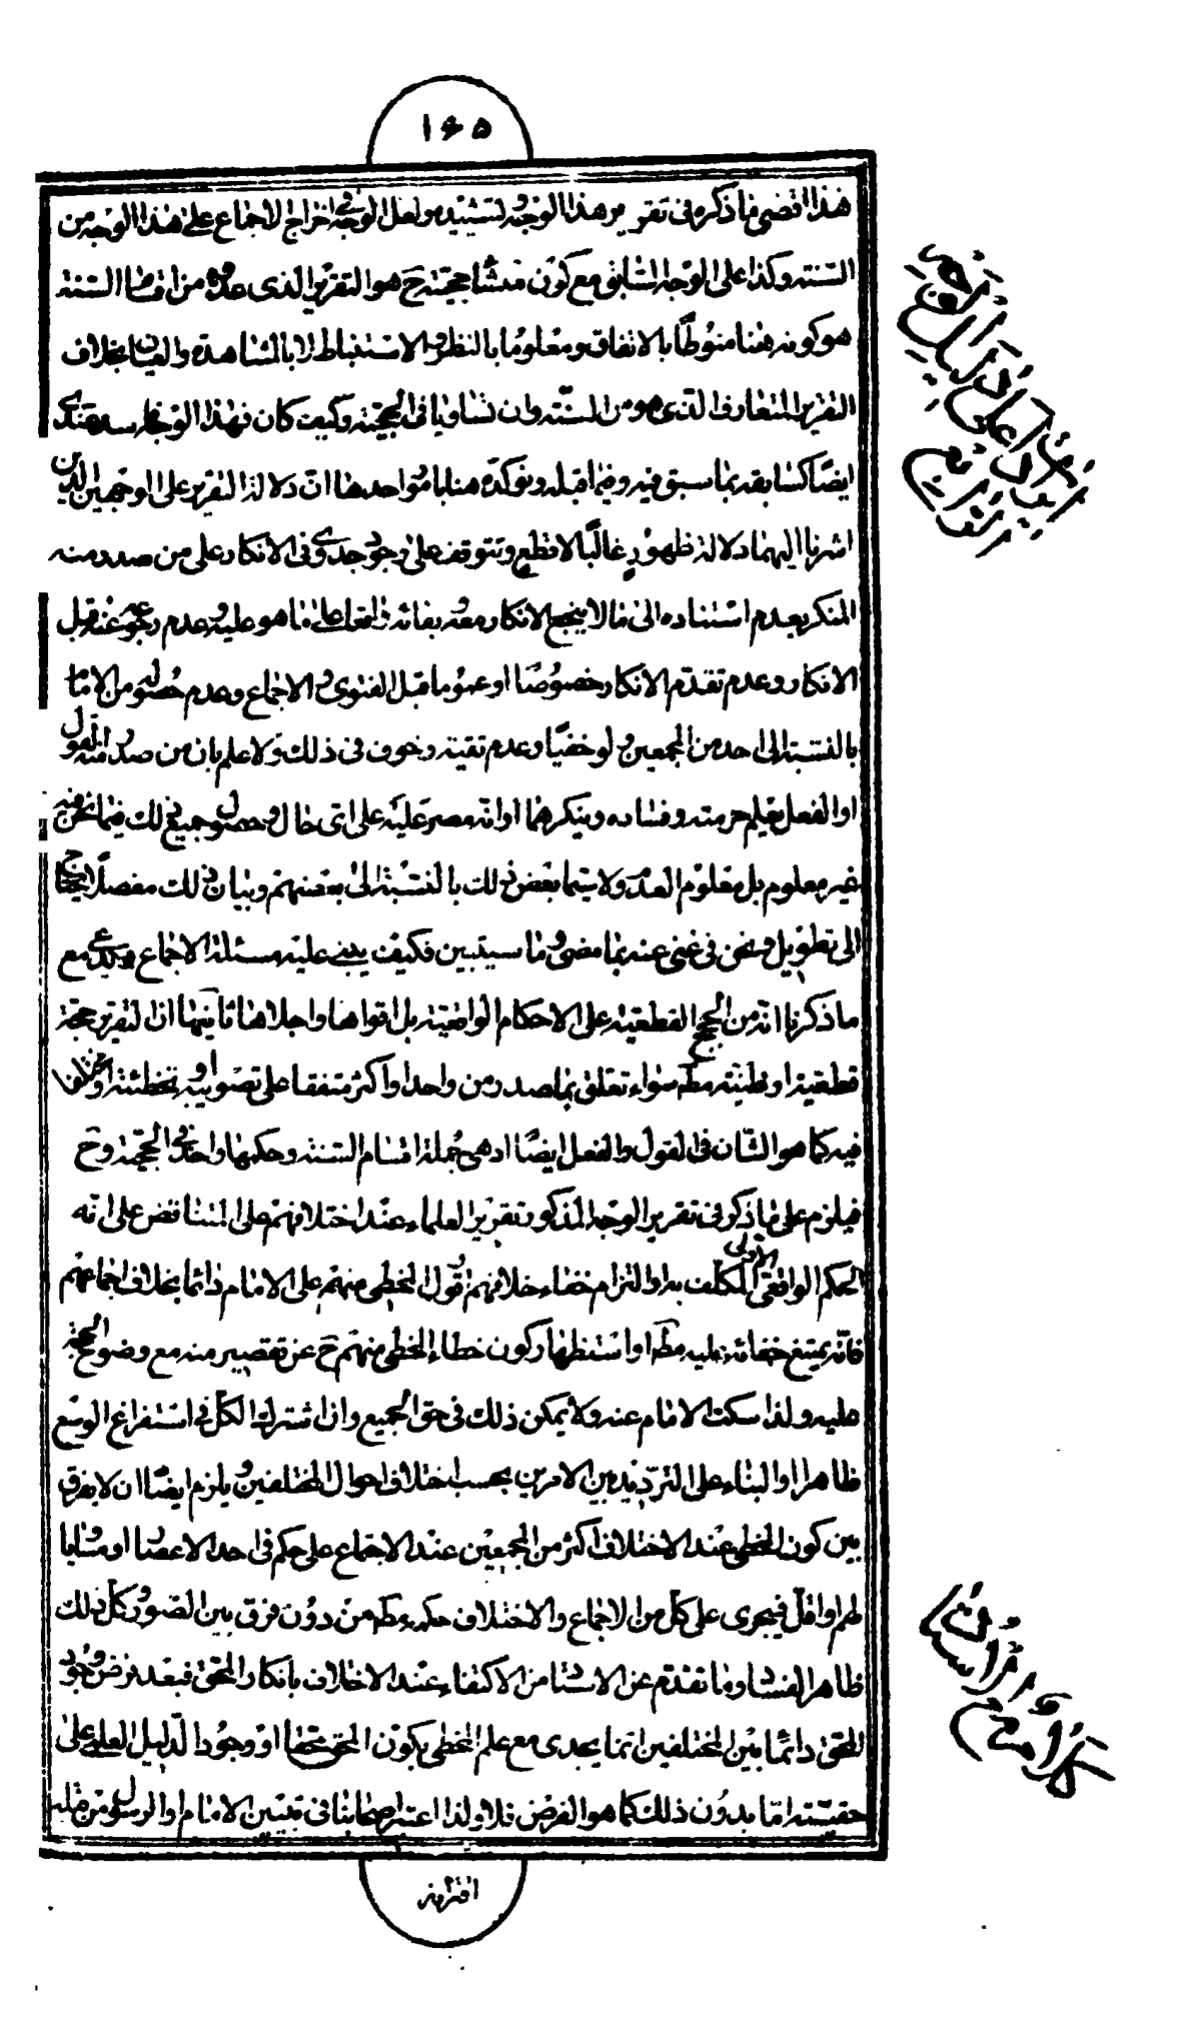 ۱۶۵
هذا اقصى ما ذكره فى تقرير هذا الوجه وتشييده ولعل الوجه فى اخراج الاجماع على هذا الوجه من
السنة وكذا على الوجه السابق مع كون منشأ حجيته ح هو التقرير الذى عدوه من اقسام السنة
هو كونه هنا منوطا بالاتفاق ومعلوما بالنظر والاستنباط لا بالمشاهدة والعيان بخلاف
التقرير المتعارف الذى هو من السنة وان تساويا فى الحجية وكيف كان فهذا الوجه فاسد عندى
ايضا كسابقه بما سبق فيه وفيما قبله ونؤكده هنا بامور احدها ان دلالة التقرير على الوجهين الذين
اشرنا اليهما دلالة ظهور غالبا لا قطع وتتوقف على وجود جدوى فى الانكار على من صدر منه
المنكر بعدم استناده الى ما لا ينجع الانكار معه وبقائه على ما هو عليه وعدم رجوعه عنه قبل
الانكار وعدم تقدم الانكار خصوصا او عموما قبل الفتوى والاجماع وعدم حصوله من الامام
بالنسبة الى احد من المجمعين ولو خفيا وعدم تقية وخوف فى ذلك ولا علم بان من صدر منه القول
او الفعل يعلم حرمته وفساده وينكرهما او انه مصر عليه على اى حال وحصول جميع ذلك فيما نحن فيه
غير معلوم بل معلوم العدم ولا سيما بعض ذلك بالنسبة الى بعضهم وبيان ذلك مفصلا يحتاج
الى تطويل ونحن فى غنى عنه بما مضى وما سيتبين فكيف يبنى عليه مسئلة الاجماع ويدعى مع
ما ذكرنا انه من الحجج القطعية على الاحكام الواقعية بل اقواها واجلاها ثانيها ان التقرير حجة
قطعية او ظنية مطه سواء تعلق بما صدر من واحد او اكثر متفقا على تصويبه او تخطئته او مختلفا
فيه كما هو الشان فى القول والفعل ايضا اذ هى جملة اقسام السنة وحكمها واحد فى الحجية وح
فيلزم على ما ذكر فى تقرير الوجه المذكور تقرير العلماء عند اختلافهم على المتناقض على انه
الحكم الواقعى الاولى المكلف به او التزام خفاء خلافهم وقول المخطى منهم على الامام دائما بخلاف اجماعهم
فانه يمتنع خفائه عليه مطه او استظهار كون خطاء المخطى منهم ح عن تقصير منه مع وضوح الحجة
عليه ولذا سكت الامام عنه ولا يمكن ذلك فى حق الجميع وان اشترك الكل فى استفراغ الوسع
ظاهرا او البناء على الترديد بين الامرين بحسب اختلاف احوال المختلفين ويلزم ايضا ان لا يفرق
بين كون المخطى عند الاختلاف اكثر من المجمعين عند الاجماع على حكم فى احد الاعصار او مساويا
لهم او اقل فيجرى على كل من الاجماع والاختلاف حكمه مطه من دون فرق بين الصور وكل ذلك
ظاهر الفساد وما تقدم عن الاستاد من الاكتفاء عند الاختلاف بانكار المحق فبعد فرض وجود
المحق دائما بين المختلفين انما يجدى مع علم المخطى بكون المحق محقا او وجود الدليل العلمى على
حقيته اما بدون ذلك كما هو الفرض فلا ولذا اعتبر اصحابنا فى تعيين الامام او الرسول من قبله
اقترانه